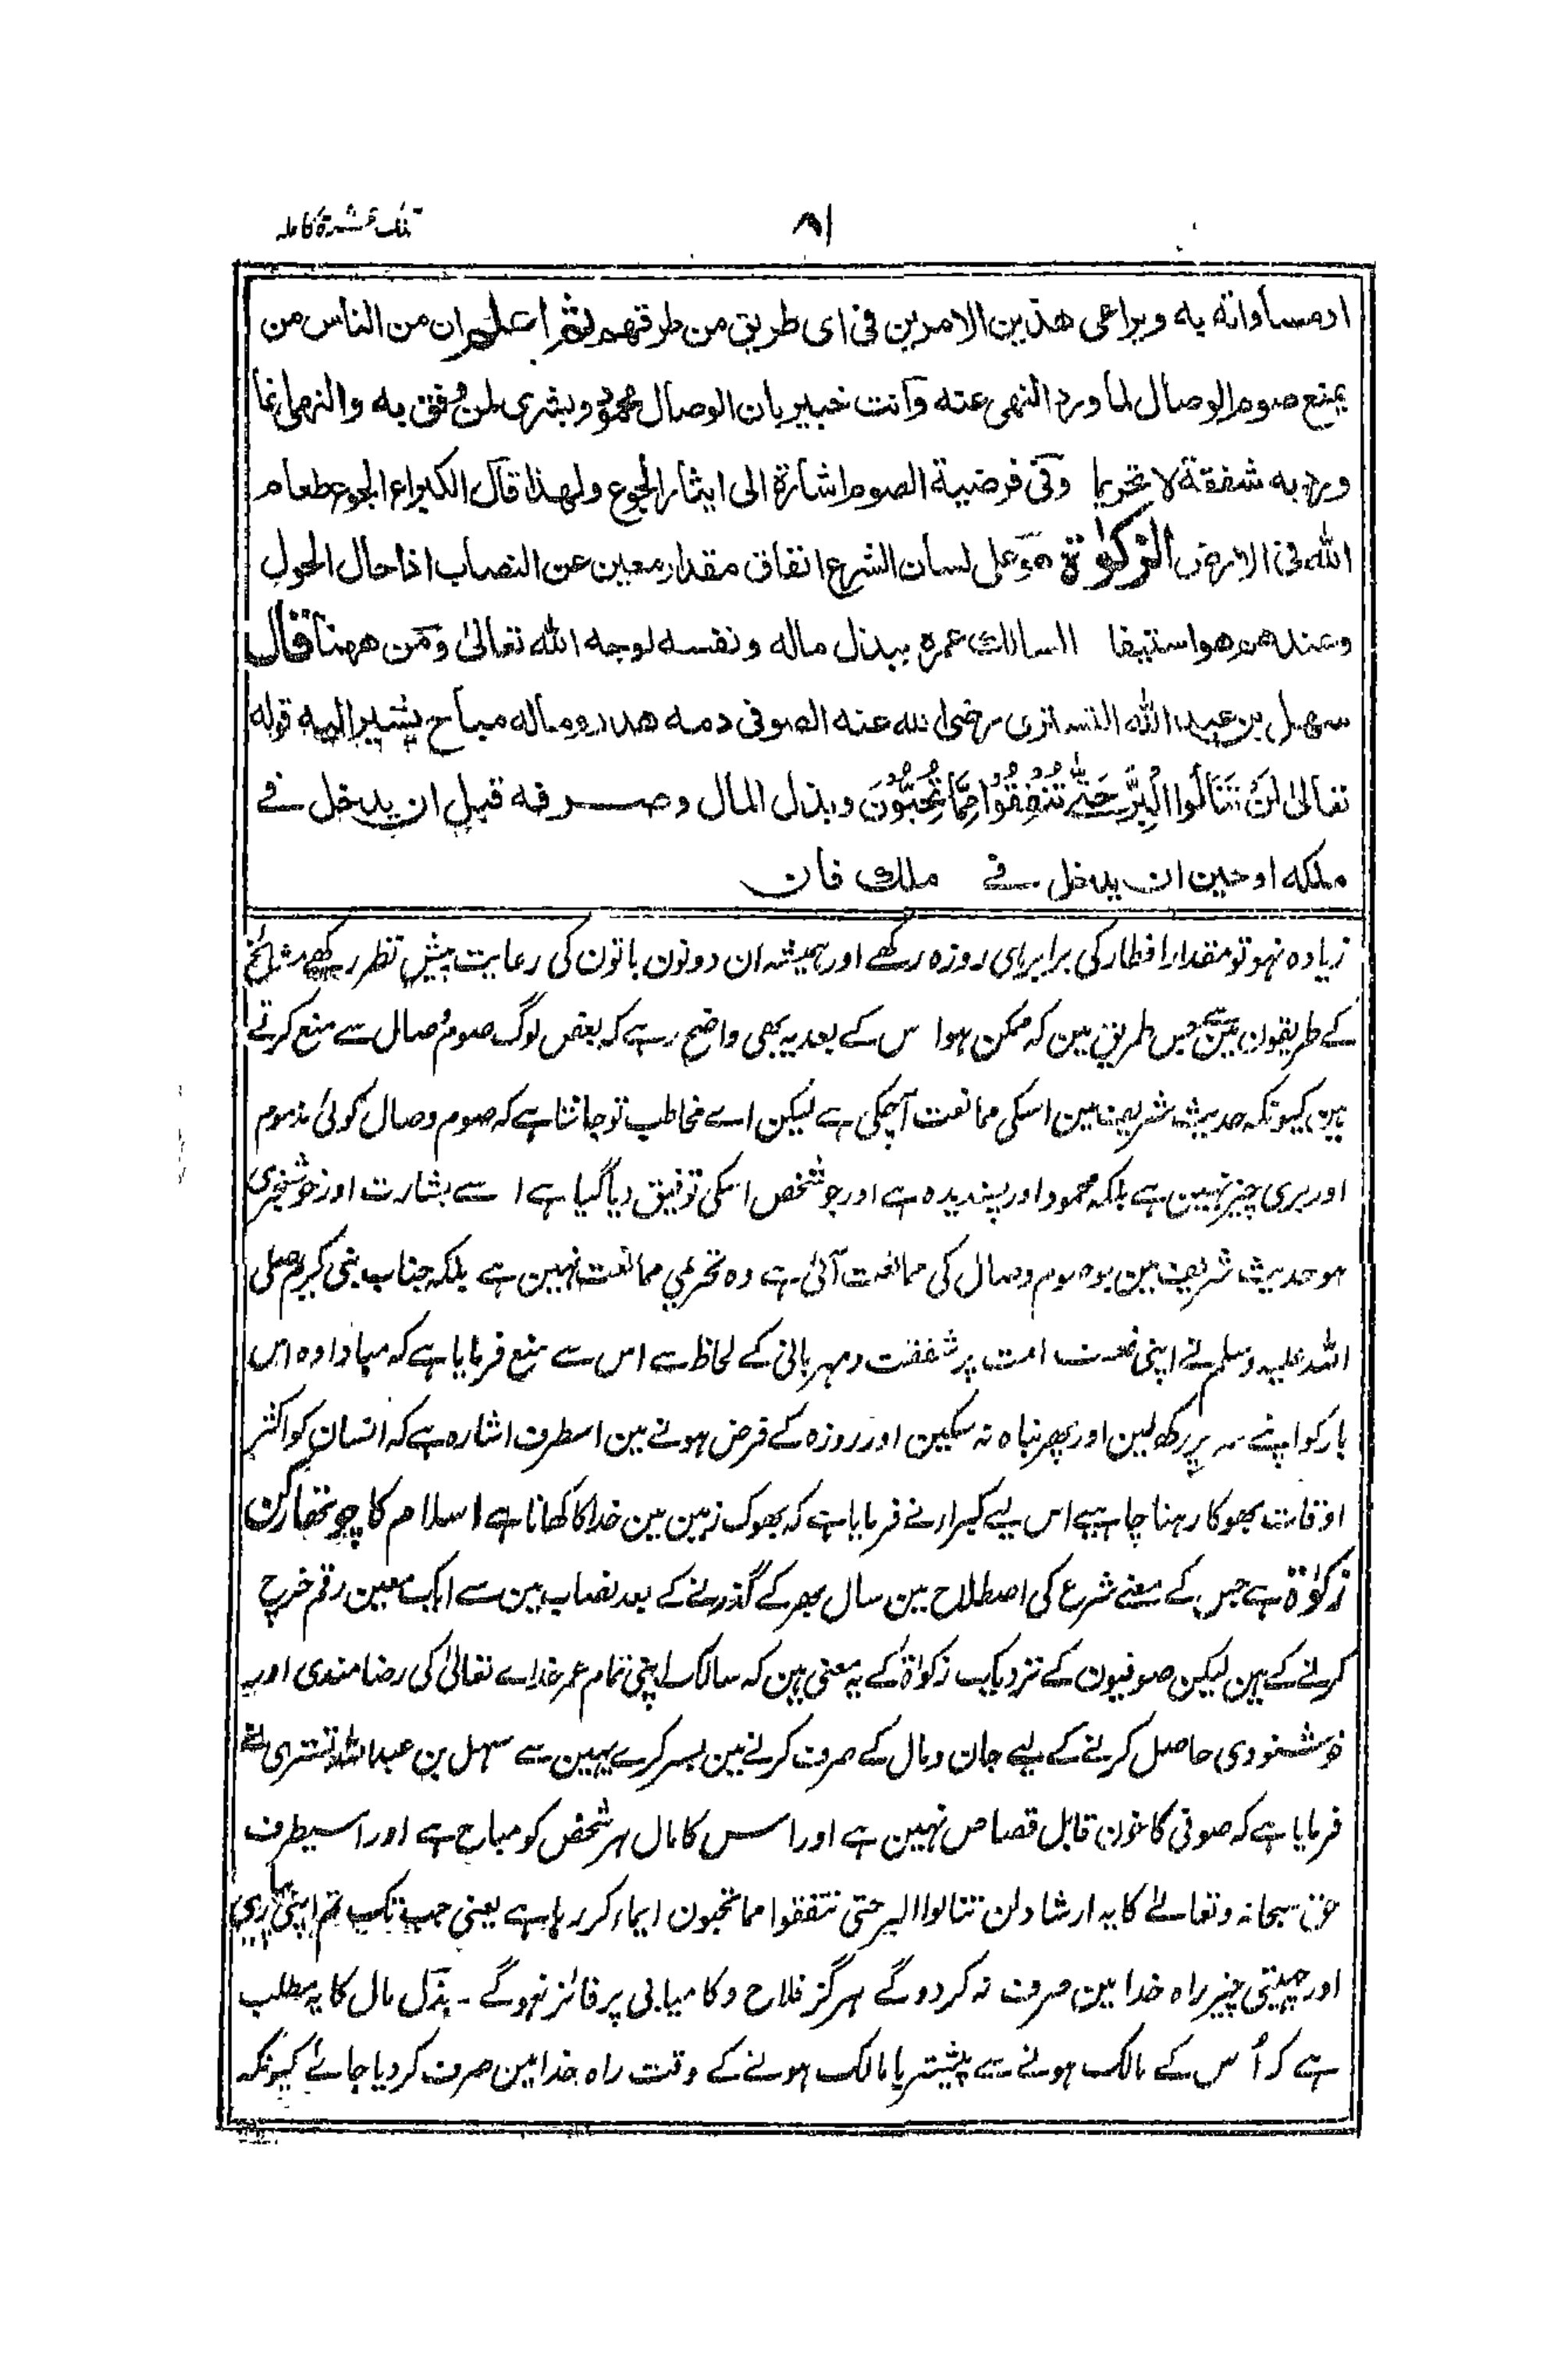 تلک عشرۃ کاملہ
۸۱
اومساواته به ویراعی هذین الامرین فی ای طریق من طرقهم ثم اعلم ان من الناس من
یمنع صوم الوصال لما ورد النهی عنه وانت خبیر بان الوصال محمود وبشری لمن وفق به والنهی انما
ورد به شفقة لا تحریما وفی فرضیة الصوم اشارة الی ایثار الجوع ولهذا قال الکبراء الجوع طعام
الله فی الارض الزکوٰة هو علی لسان الشرع انفاق مقدار معین عن النصاب اذا حال الحول
وعندهم هو استیفا السالک عمره ببذل ماله ونفسه لوجه الله تعالیٰ ومن ههنا قال
سهل بن عبد الله التستری رضی الله عنه الصوفی دمه هدر وماله مباح یشیر الیه قوله
تعالیٰ لَنْ تَنَالُوا الْبِرَّ حَتّٰی تُنْفِقُوْا مِمَّا تُحِبُّوْنَ وبذل المال وصرفه قبل ان یدخل فے
ملکه او حین ان یدخل فے ملک فان
زیادہ نہو تو مقدار افطار کی برابر ہی روزہ رکھے اور ہمیشہ ان دونون باتون کی رعایت پیش نظر رکھے مشائخ
کے طریقون مین سے جس طریق مین کہ ممکن ہو اس کے بعد یہ بھی واضح رہے کہ بعض لوگ صوم وصال سے منع کرتے
ہین کیونکہ حدیث شریف مین اسکی ممانعت آچکی ہے لیکن اے مخاطب تو جانتا ہے کہ صوم وصال کوئی مذموم
اور بری چیز نہین ہے بلکہ محمود اور پسندیدہ ہے اور جو شخص اسکی توفیق دیا گیا ہے اسے بشارت اور خوشخبری
ہو حدیث شریف مین جو صوم وصال کی ممانعت آئی ہے وہ تحریمی ممانعت نہین ہے بلکہ جناب نبی کریم صلی
اللہ علیہ وسلم نے اپنی امت پر شفقت ومہربانی کے لحاظ سے اس سے منع فرمایا ہے کہ مبادا وہ اس
بار کو اپنے سر پر رکھ لین اور پھر نباہ نہ سکین اور روزہ کے فرض ہونے مین اسطرف اشارہ ہے کہ انسان کو اکثر
اوقات بھوکا رہنا چاہیے اس لیے کبرا نے فرمایا ہے کہ بھوک زمین مین خدا کا کھانا ہے اسلام کا چوتھا رکن
زکوٰۃ ہے جس کے معنے شرع کی اصطلاح مین سال بھر کے گذرنے کے بعد نصاب مین سے ایک معین رقم خرچ
کرنے کے ہین لیکن صوفیون کے نزدیک زکوٰۃ کے یہ معنی ہین کہ سالک اپنی تمام عمر خداے تعالیٰ کی رضامندی اور
خوشنودی حاصل کرنے کے لیے جان ومال کے صرف کرنے مین بسر کرے یہین سے سہل بن عبداللہ تستری نے
فرمایا ہے کہ صوفی کا خون قابل قصاص نہین ہے اور اس کا مال ہر شخص کو مباح ہے اور اسیطرف
حق سبحانہ وتعالےٰ کا یہ ارشاد لن تنالوا البر حتی تنفقوا مما تحبون ایماء کر رہا ہے یعنی جب تک تم اپنی پیاری
اور چہیتی چیز راہ خدا مین صرف نہ کردو گے ہرگز فلاح وکامیابی پر فائز نہوگے۔ بذل مال کا یہ مطلب
ہے کہ اُس کے مالک ہونے سے پیشتر یا مالک ہونے کے وقت راہ خدا مین صرف کر دیا جائے کیونکہ